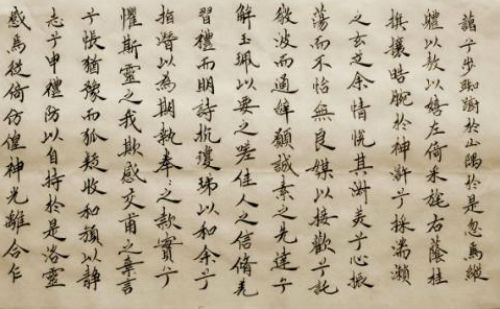 藹兮步踟躕於山隅於是忽焉縱
體以敖以嬉左倚采旄右蔭桂
旗攘皓腕於神滸兮採湍瀨
之玄芝余情悅其淑美兮心振
蕩而不怡無良媒以接歡兮託
微波而通辭願誠素之先達兮
解玉珮以要之嗟佳人之信脩羌
習禮而明詩抗瓊珶以和余兮
指潛以為期執拳々之款實兮
懼斯靈之我欺感交甫之棄言
兮悵猶豫而狐疑收和顏以靜
志兮申禮防以自持於是洛靈
感焉徙倚仿偟神光離合乍